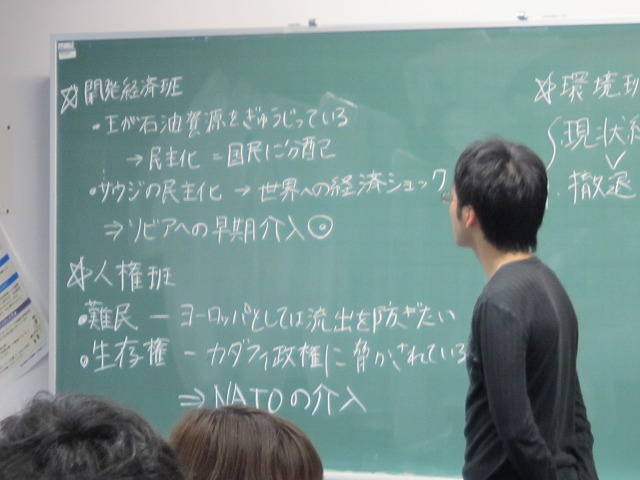 ☆開発経済班
・王が石油資源をぎゅうじっている
→民主化=国民に分配
・サウジの民主化→世界への経済ショック
⇒リビアへの早期介入◎
☆人権班
・難民ーヨーロッパとしては流出を防ぎたい
・生存権ーカダフィ政権に脅かされている
⇒NATOの介入
☆環境班
現状
撤退